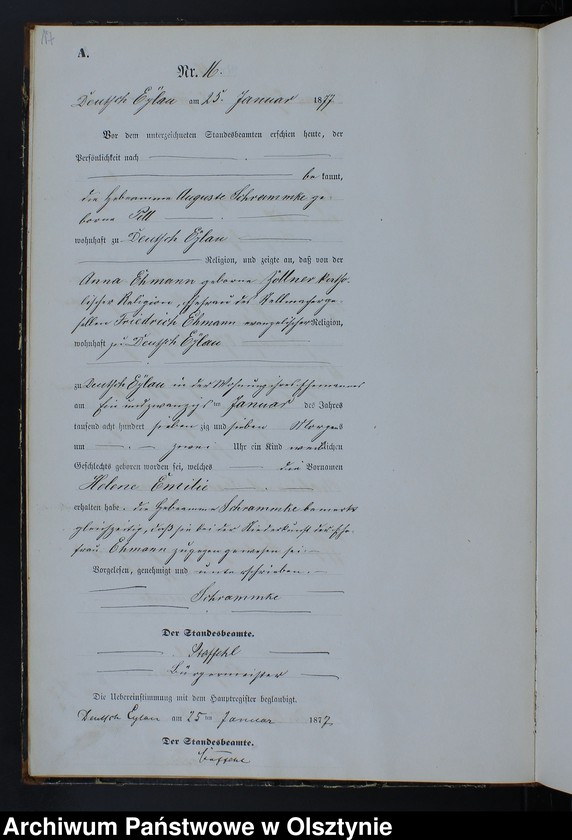 A.
Nr. 16.
Deutsch Eylau am 25. Januar 1877
Vor dem unterzeichneten Standesbeamten erschien heute, der
Persönlichkeit nach
be kannt,
die Hebeamme Auguste Schrammke ge-
borne
wohnhaft zu Deutsch Eylau
Religion, und zeigte an, daß von der
Anna Ehmann geborne Zöllner katho-
lischer Religion, Ehefrau des
sellen Friedrich Ehmann evangelischer Religion,
wohnhaft zu Deutsch Eylau
zu Deutsch Eylau in der Wohnung ihres Ehemannes
am ein und zwanzigs ten Januar des Jahres
tausend acht hundert sieben zig und sieben Morgens
um zwei Uhr ein Kind weiblichen
Geschlechts geboren worden sei, welches die Vornamen
Helene Emilie
erhalten habe. die Hebeamme Schrammke bemerkt
gleichzeitig, daß sie bei der Niederkunft der Ehe-
frau Ehmann zugegen gewesen sei
Vorgelesen, genehmigt und unterschrieben.
Schrammke
Der Standesbeamte.
Bürgermeister
Die Uebereinstimmung mit dem Hauptregister beglaubigt.
Deutsch Eylau am 25 ten Januar 1877
Der Standesbeamte.
Archiwum Państwowe w Olsztynie